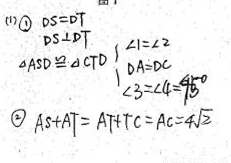 (1) ① DS=DT
DS⊥DT
△ASD≌△CTD
∠1=∠2
DA=DC
∠3=∠4=45°
② AS+AT=AT+TC=AC=4√2